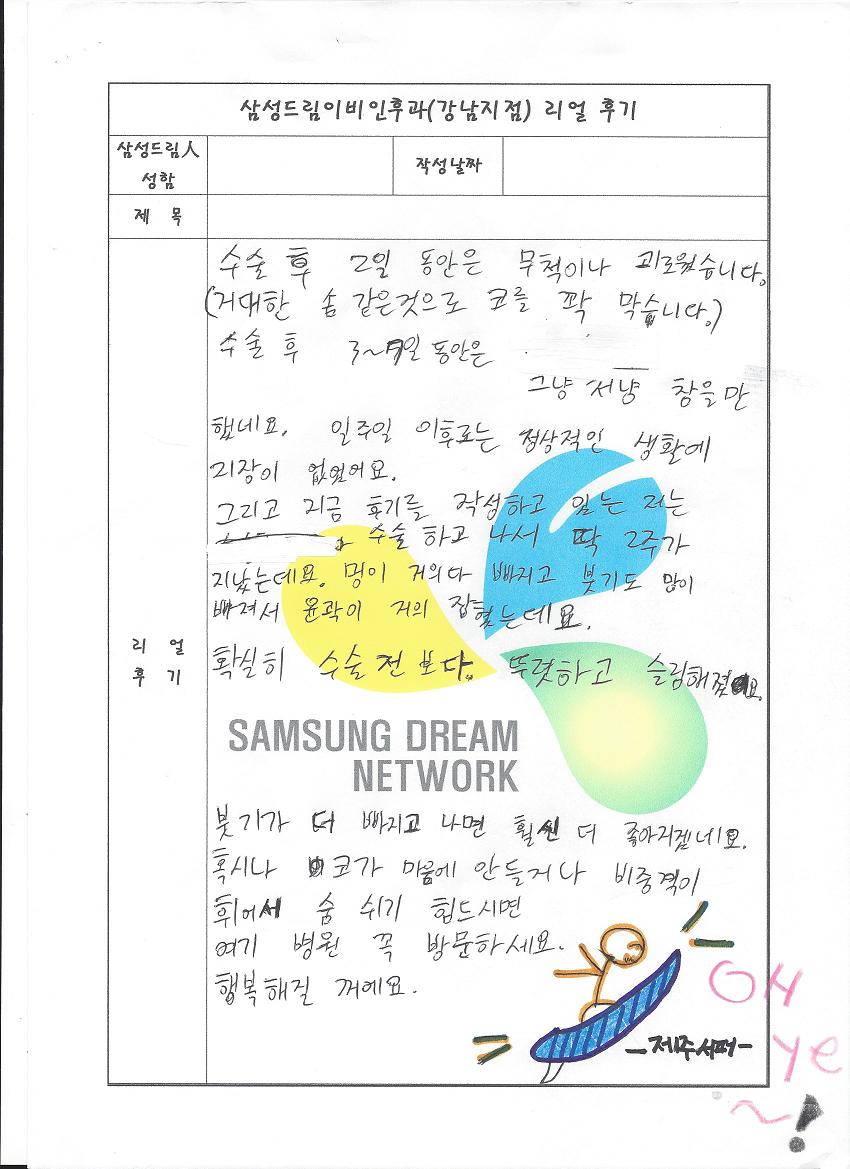 삼성드림이비인후과(강남지점) 리얼 후기
삼성드림人
성함
작성날짜
제 목
리 얼
후 기
수술 후 2일 동안은 무척이나 괴로웠습니다.
(거대한 솜 같은것으로 코를 꽉 막습니다.)
수술 후 3~7일 동안은
그냥 저냥 참을만
했네요. 일주일 이후로는 정상적인 생활에
지장이 없었어요.
그리고 지금 후기를 작성하고 있는 저는
수술 하고 나서 딱 2주가
지났는데요. 멍이 거의다 빠지고 붓기도 많이
빠져서 윤곽이 거의 잡혔는데요.
확실히 수술 전 보다. 뚜렷하고 슬림해졌어요.
SAMSUNG DREAM
NETWORK
붓기가 더 빠지고 나면 훨씬 더 좋아지겠네요.
혹시나 코가 마음에 안들거나 비중격이
휘어서 숨 쉬기 힘드시면
여기 병원 꼭 방문하세요.
행복해질 꺼에요.
-제주서퍼-
OH
ye
~!